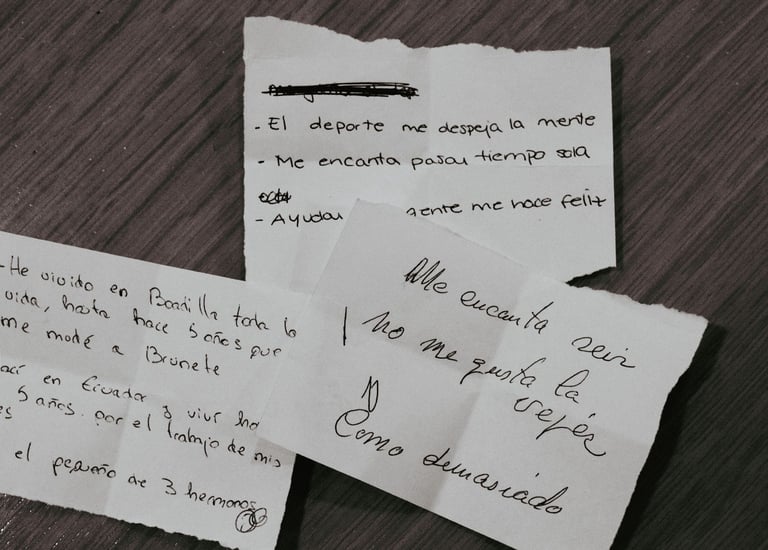 - El deporte me despeja la mente
- Me encanta pasar tiempo sola
- Ayudar gente me hace feliz
-He vivido en Boadilla toda la
vida, hasta hace 5 años que
me mudé a Brunete
ací en Ecuador y viví ha
5 años. por el trabajo de mis
es
el pequeño de 3 hermanos
Me encanta reir
No me gusta la
vejez
Como demasiado